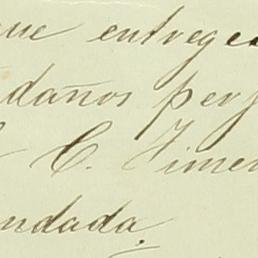 que entregue
daños perj
C. Jimen
ndada.